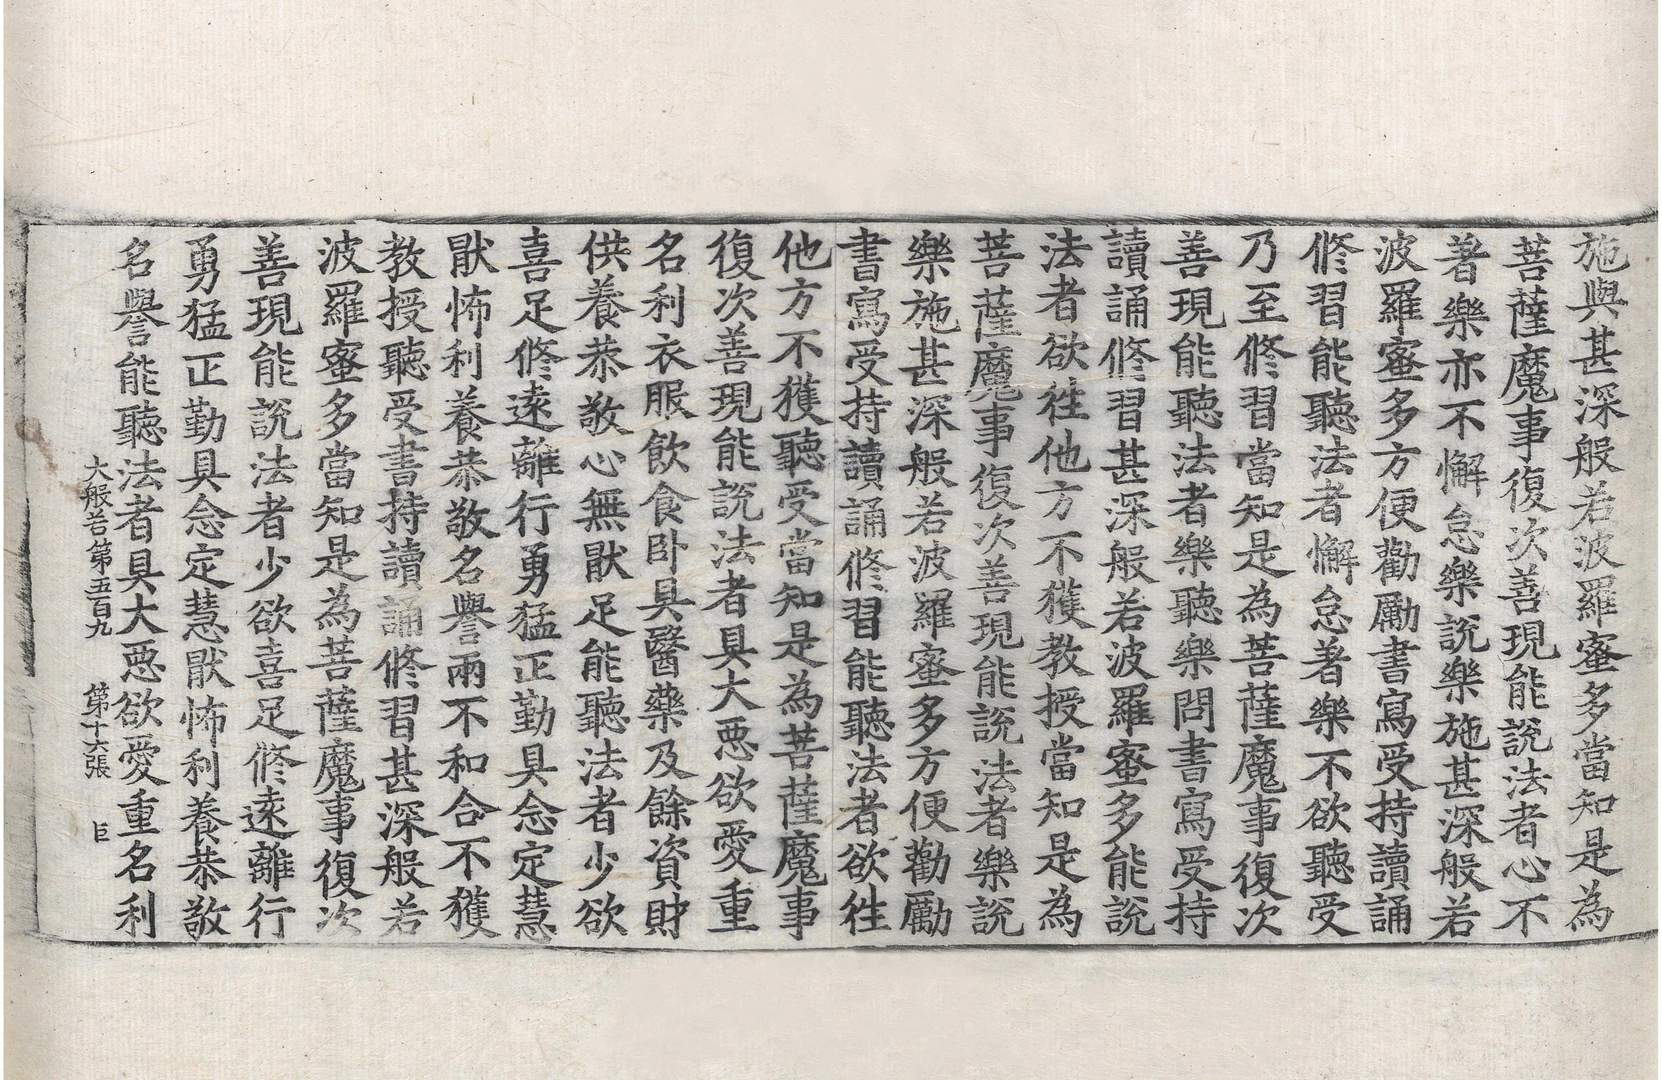 施與甚深般若波羅蜜多當知是為
菩薩魔事復次善現能說法者心不
著樂亦不懈怠樂說樂施甚深般若
波羅蜜多方便勸勵書寫受持讀誦
修習能聽法者懈怠著樂不欲聽受
乃至修習當知是為菩薩魔事復次
善現能聽法者樂聽樂問書寫受持
讀誦修習甚深般若波羅蜜多能說
法者欲往他方不獲教授當知是為
菩薩魔事復次善現能說法者樂說
樂施甚深般若波羅蜜多方便勸勵
書寫受持讀誦修習能聽法者欲往
他方不獲聽受當知是為菩薩魔事
復次善現能說法者具大惡欲愛重
名利衣服飲食臥具醫藥及餘資財
供養恭敬心無猒足能聽法者少欲
喜足修遠離行勇猛正勤具念定慧
猒怖利養恭敬名譽兩不和合不獲
教授聽受書持讀誦修習甚深般若
波羅蜜多當知是為菩薩魔事復次
善現能說法者少欲喜足修遠離行
勇猛正勤具念定慧猒怖利養恭敬
名譽能聽法者具大惡欲愛重名利
大般若第五百九 第十六張 巨